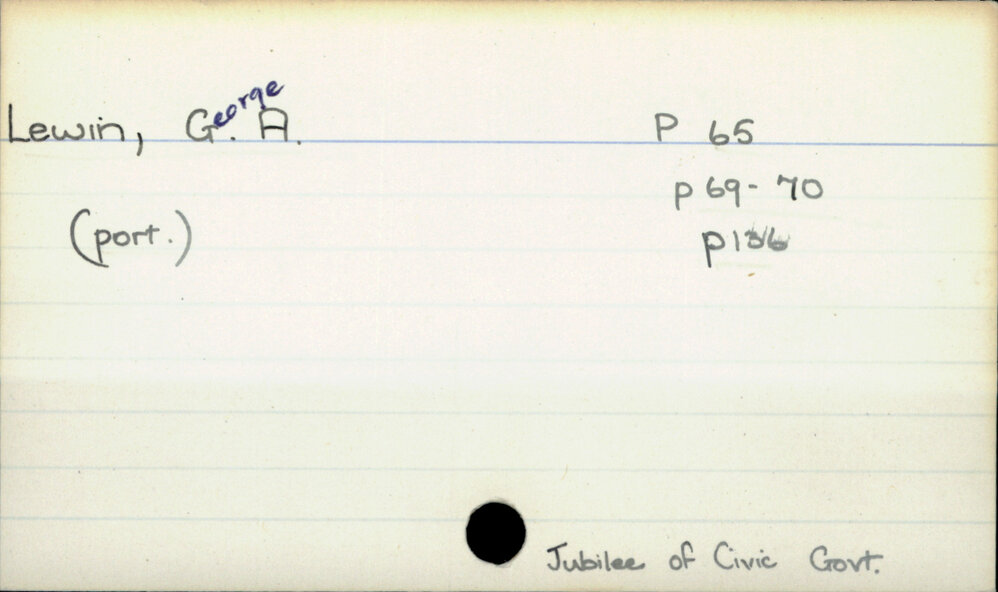 Lewin, George. A.
P 65
p 69-70
(port.)
p136
Jubilee of Civic Govt.